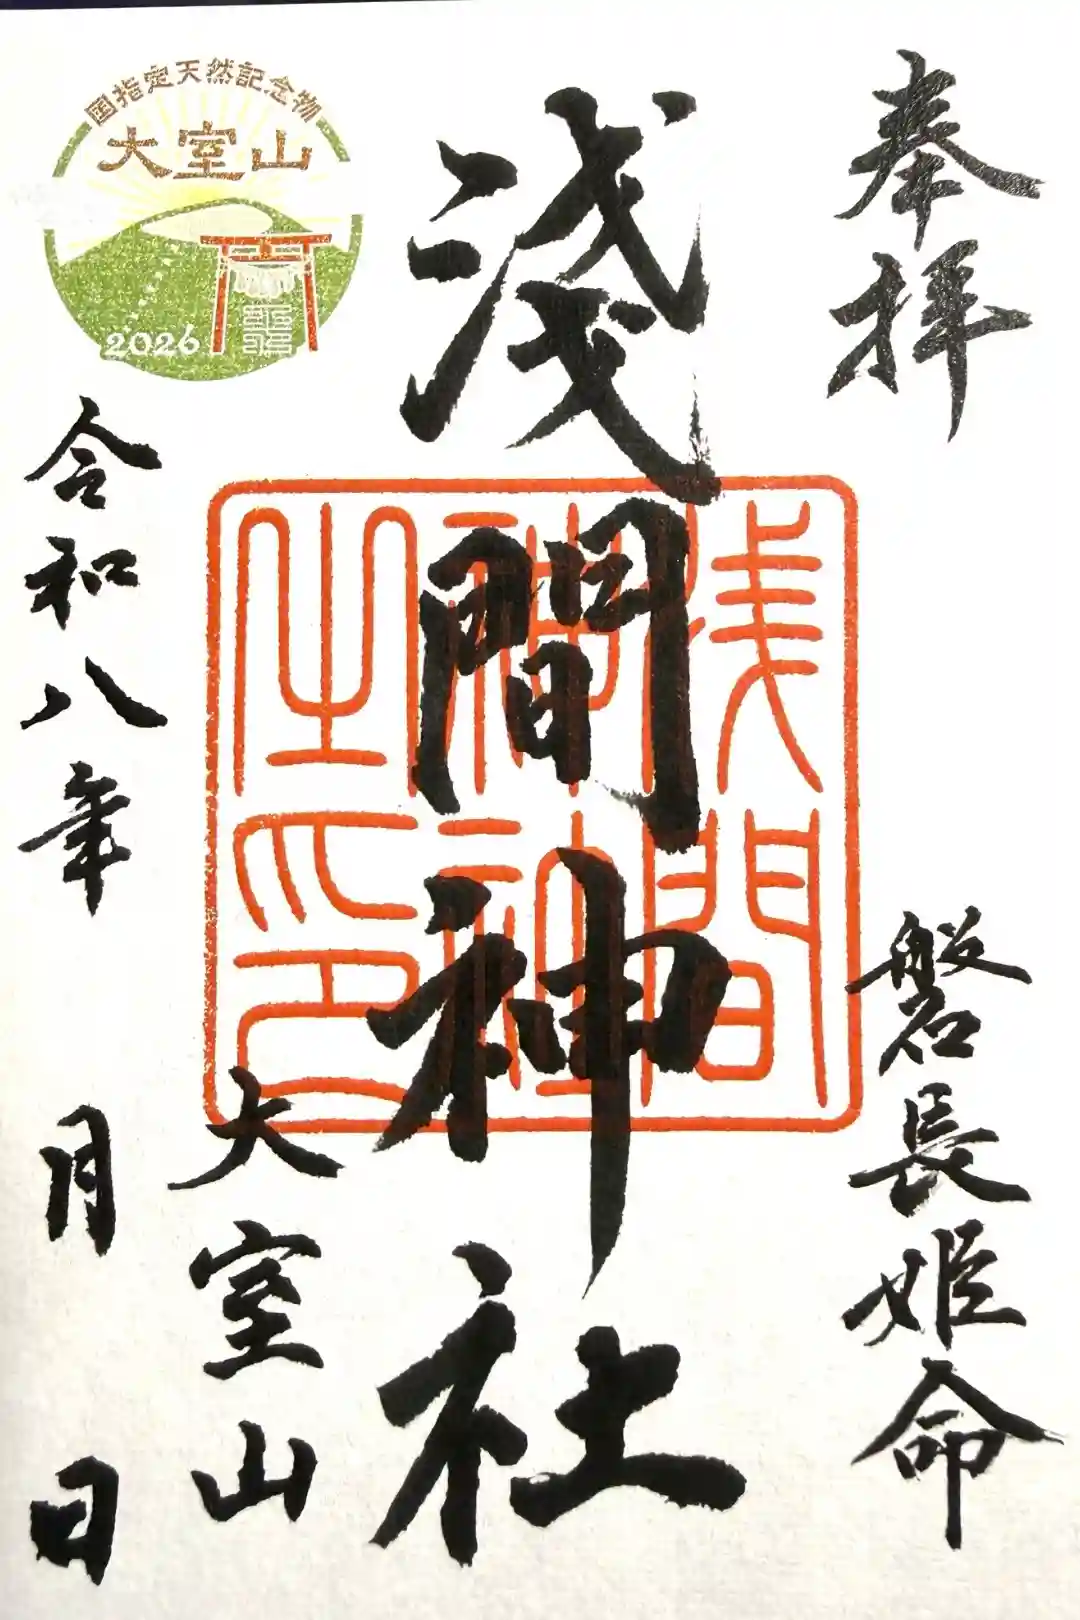 奉拝
磐長姫命
淺間神社
浅間
神社
之印
大室山
令和八年
月
日
国指定天然記念物
大室山
2026